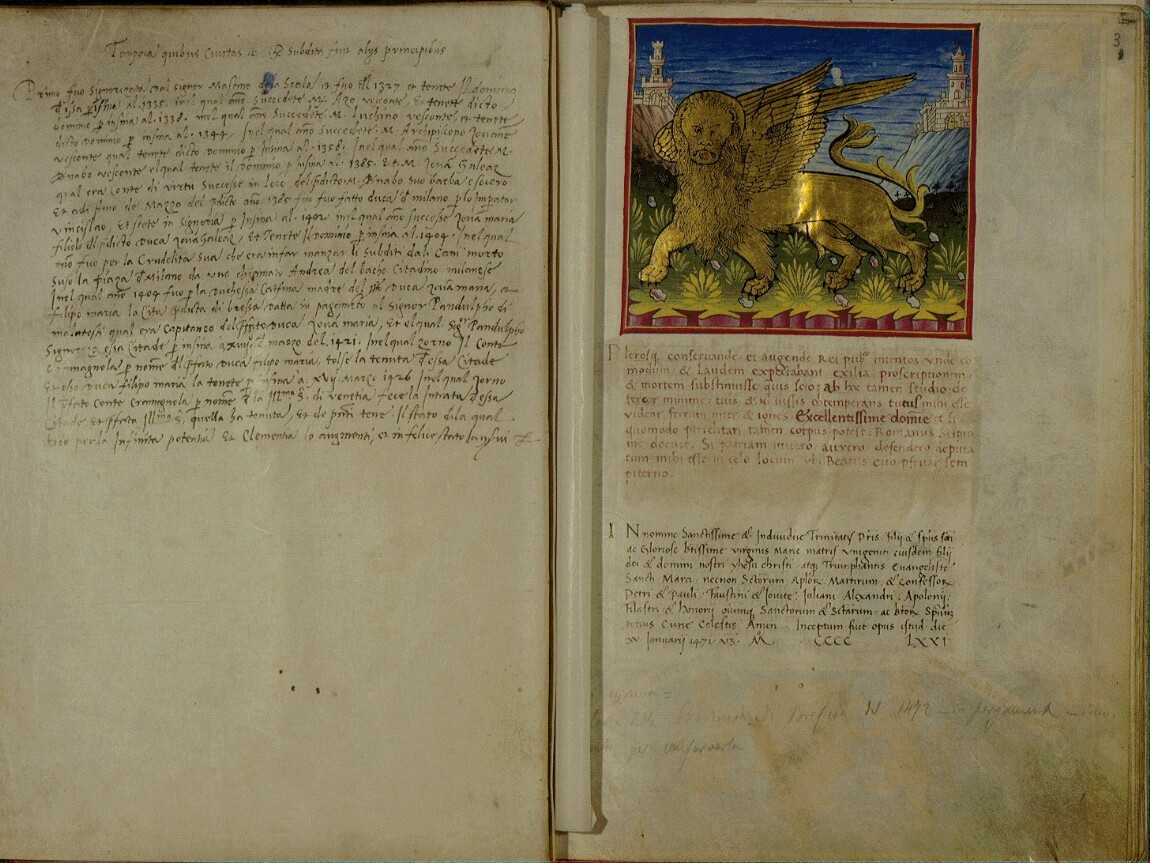 Tempora quibus Civitas subdita fuit alijs principibus
Primo fuo Signorezata dal signor Mastino dela Scala et fuo del 1327 et tenete il dominio
d'essa per insina al 1335. inel qual anno Succedete M. Azo vesconte, Et tenete dicto
dominio per insina al 1338. inel qual anno Succedete. M. Luchino vesconte, et tenete
dicto dominio per insina al. 1344. Inel qual anno Succedete. M. Archipiscopo Jouane
vesconte qual tenete dicto dominio per insina al. 1358. Inel qual anno Succedete. M.
Bnabo vesconte elqual tenete il dominio per insina al. 1385. Et. M. Joua Galeaz
qual era Conte di virtu Successe in loco del pdicto. M. Bnabo suo barba e socero
Et adi fino de Mazzo del pdicto anno 1385 fuo fuo fatto duca d milano p lo Imperator
vincislao, et stete in Signoria p insina al. 1402. inel qual anno successe Joua maria
filiolo del pdicto Duca Joua Galeaz, Et Tenete il dominio p insina al. 1404. Inel qual
ano fuo per la Crudelita sua che era infar manzar li Subditi dali Cani morto
suso la piaza d Milano da uno chiamato Andrea del bacho Citadino milanese
Inel qual anno 1404 fuo p la duchessa Catlina madre del pto Duca Joua maria, et
filipo maria la Cita pdicta di bressa data in pagameto al Signor Pandulpho di
malatesti qual era Capitaneo del pfato Duca Joua maria, Et elqual Sigr Pandulpho
Signorezo essa Citade p insina a xiiij. d marzo del. 1421. Inelqual zorno Il Conte
Cramagnola p nome dl pfato Duca filipo maria, tolse la tenuta d essa Citade
Et esso Duca filipo maria la tenete p insina a. xvij. Marzo 1426. Inel qual Jorno
Il pfato Conte Cramignola p nome d la Illma S. di venetia fece la Intrata d essa
Citade et pfata Illma S. quella ha tenuta, et de pnti tene. Il stato dila qual
Dio per la Infinita potentia Et Clementia lo augmenti, et in felice stato
3
Plerosq, conservande et augende Rei pub intentos unde co
modum, & Laudem expectabant exilia, proscriptionem
& mortem substinuisse quis scio; ab hr tamen studio de
terreor minime: tuis, & N iussis obtemperans tutus mihi esse
videor, ferrum inter & ignes. Excellentissime domine et li
quomodo periclitari tamen corpus potest. Romanus Scipio
me docuit. Si patriam iuvero, auxero, defendero, deputa
tum mihi esse in celo locum ubi Beatus evo pfruar sem
piterno.
IN nomine Sanctissime & Individue Trinitatis Pris filij & spus sci
ac Gloriose btissime virginis Marie matris unigeniti eiusdem filij
dei & domini nostri yhesu christi atqz Triumphantis Evangeliste
Sancti Marci, necnon Sctorum Aplor. Martirum & Confessor
Petri & Pauli. Faustini & Jovite. Iuliani. Alexandri. Apolonij.
Filastri & honorij oiumqz Sanctorum & Sctarum ac btor. Spiritu
totius Curie Celestis Amen. Inceptum fuit opus istud die
xv Januarij 1471 vz. M CCCC LXXI